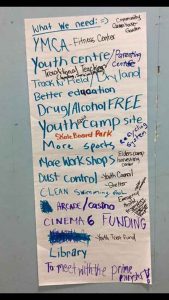 What We need: :)
Community Green house - Garden
YMCA - Fitness Center
Youth centre / Parenting Centre
Traditional Teachings
Track & Field / Dry land
Better education
Drug/Alcohol FREE
Youth camp site
Skate Board Park
recycling system
More Sports
More Workshops
Elders camp
Dust control
Youth Council
- Shelter
CLEAN Swimming Pool
ARCADE/casino
CINEMA 6 FUNDING
Youth Trust Fund
Library
To meet with the prime minister!